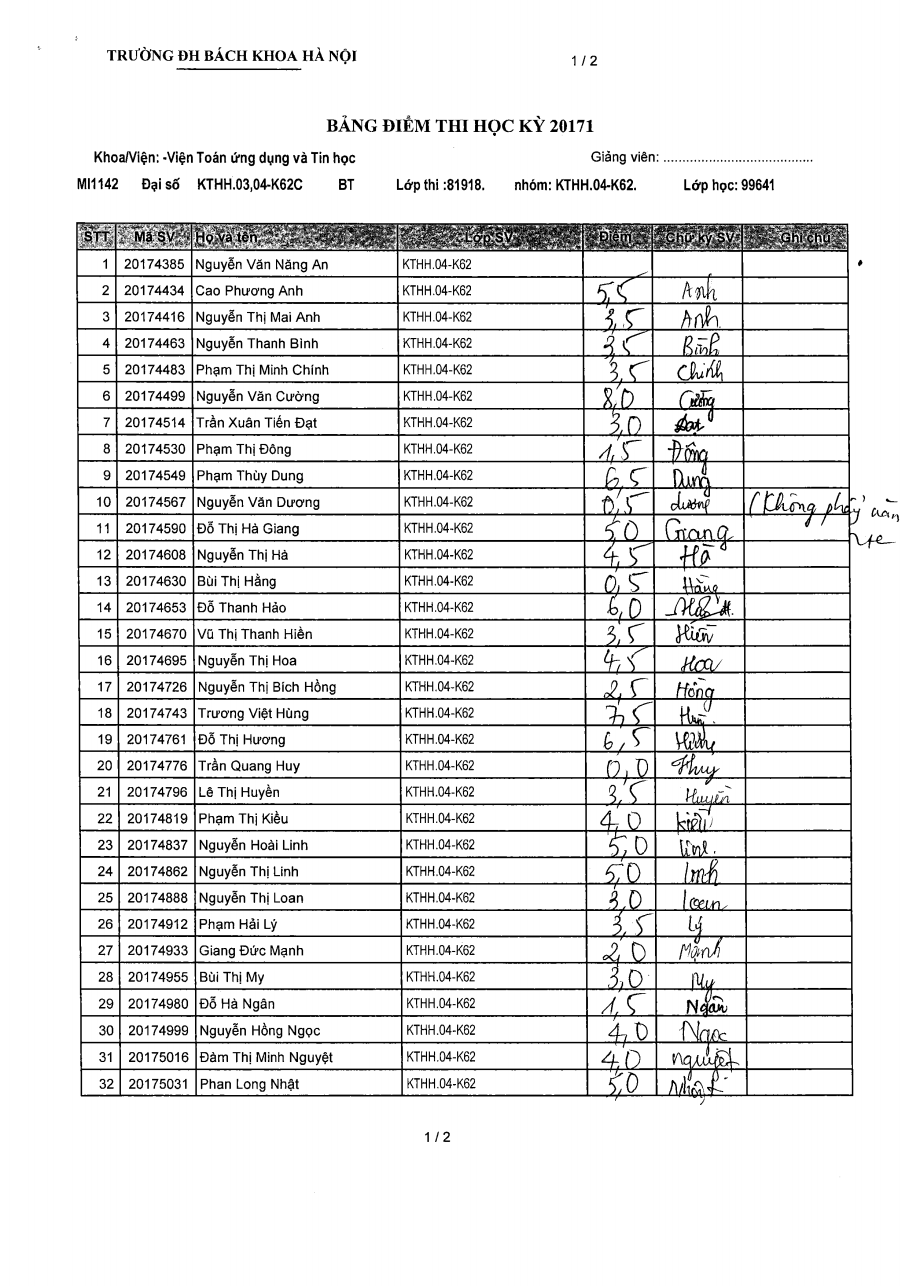 TRƯỜNG ĐH BÁCH KHOA HÀ NỘI 1 / 2
BẢNG ĐIỂM THI HỌC KỲ 20171
Khoa/Viện: -Viện Toán ứng dụng và Tin học Giảng viên: ........................................
MI1142 Đại số KTHH.03,04-K62C BT Lớp thi :81918. nhóm: KTHH.04-K62. Lớp học: 99641
STT Mã SV Họ và tên Lớp SV Điểm Chữ ký SV Ghi chú
1 20174385 Nguyễn Văn Năng An KTHH.04-K62
2 20174434 Cao Phương Anh KTHH.04-K62 5,5 Anh
3 20174416 Nguyễn Thị Mai Anh KTHH.04-K62 3,5 Anh
4 20174463 Nguyễn Thanh Bình KTHH.04-K62 3,5 Bình
5 20174483 Phạm Thị Minh Chính KTHH.04-K62 3,5 Chính
6 20174499 Nguyễn Văn Cường KTHH.04-K62 8,0 Cường
7 20174514 Trần Xuân Tiến Đạt KTHH.04-K62 3,0 Đạt
8 20174530 Phạm Thị Đông KTHH.04-K62 1,5 Đông
9 20174549 Phạm Thùy Dung KTHH.04-K62 6,5 Dung
10 20174567 Nguyễn Văn Dương KTHH.04-K62 0,5 dương (Không phẩy
11 20174590 Đỗ Thị Hà Giang KTHH.04-K62 5,0 Giang
12 20174608 Nguyễn Thị Hà KTHH.04-K62 4,5 Hà
13 20174630 Bùi Thị Hằng KTHH.04-K62 0,5 Hằng
14 20174653 Đỗ Thanh Hảo KTHH.04-K62 6,0 Hảo
15 20174670 Vũ Thị Thanh Hiền KTHH.04-K62 3,5 Hiền
16 20174695 Nguyễn Thị Hoa KTHH.04-K62 4,5 Hoa
17 20174726 Nguyễn Thị Bích Hồng KTHH.04-K62 2,5 Hồng
18 20174743 Trương Việt Hùng KTHH.04-K62 7,5 Hùng
19 20174761 Đỗ Thị Hương KTHH.04-K62 6,5 Hương
20 20174776 Trần Quang Huy KTHH.04-K62 0,0 Huy
21 20174796 Lê Thị Huyền KTHH.04-K62 3,5 Huyền
22 20174819 Phạm Thị Kiều KTHH.04-K62 4,0 kiều
23 20174837 Nguyễn Hoài Linh KTHH.04-K62 5,0 linh
24 20174862 Nguyễn Thị Linh KTHH.04-K62 5,0 Linh
25 20174888 Nguyễn Thị Loan KTHH.04-K62 3,0 Loan
26 20174912 Phạm Hải Lý KTHH.04-K62 3,5 Lý
27 20174933 Giang Đức Mạnh KTHH.04-K62 2,0 Mạnh
28 20174955 Bùi Thị My KTHH.04-K62 3,0 My
29 20174980 Đỗ Hà Ngân KTHH.04-K62 1,5 Ngân
30 20174999 Nguyễn Hồng Ngọc KTHH.04-K62 4,0 Ngọc
31 20175016 Đàm Thị Minh Nguyệt KTHH.04-K62 4,0 nguyệt
32 20175031 Phan Long Nhật KTHH.04-K62 5,0 Nhật
1 / 2